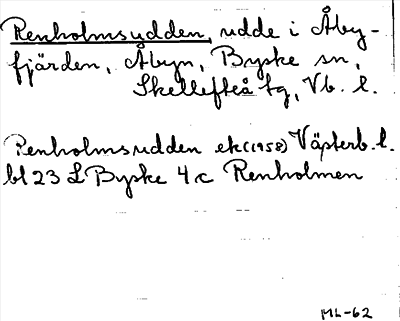 Renholmsudden, udde i Åby-
fjärden, Åbyn, Byske sn,
Skellefteå tg, Vb. l.
Renholmsudden ek(1958) Västerb. l.
bl 23 L Byske 4 c Renholmen
ML-62